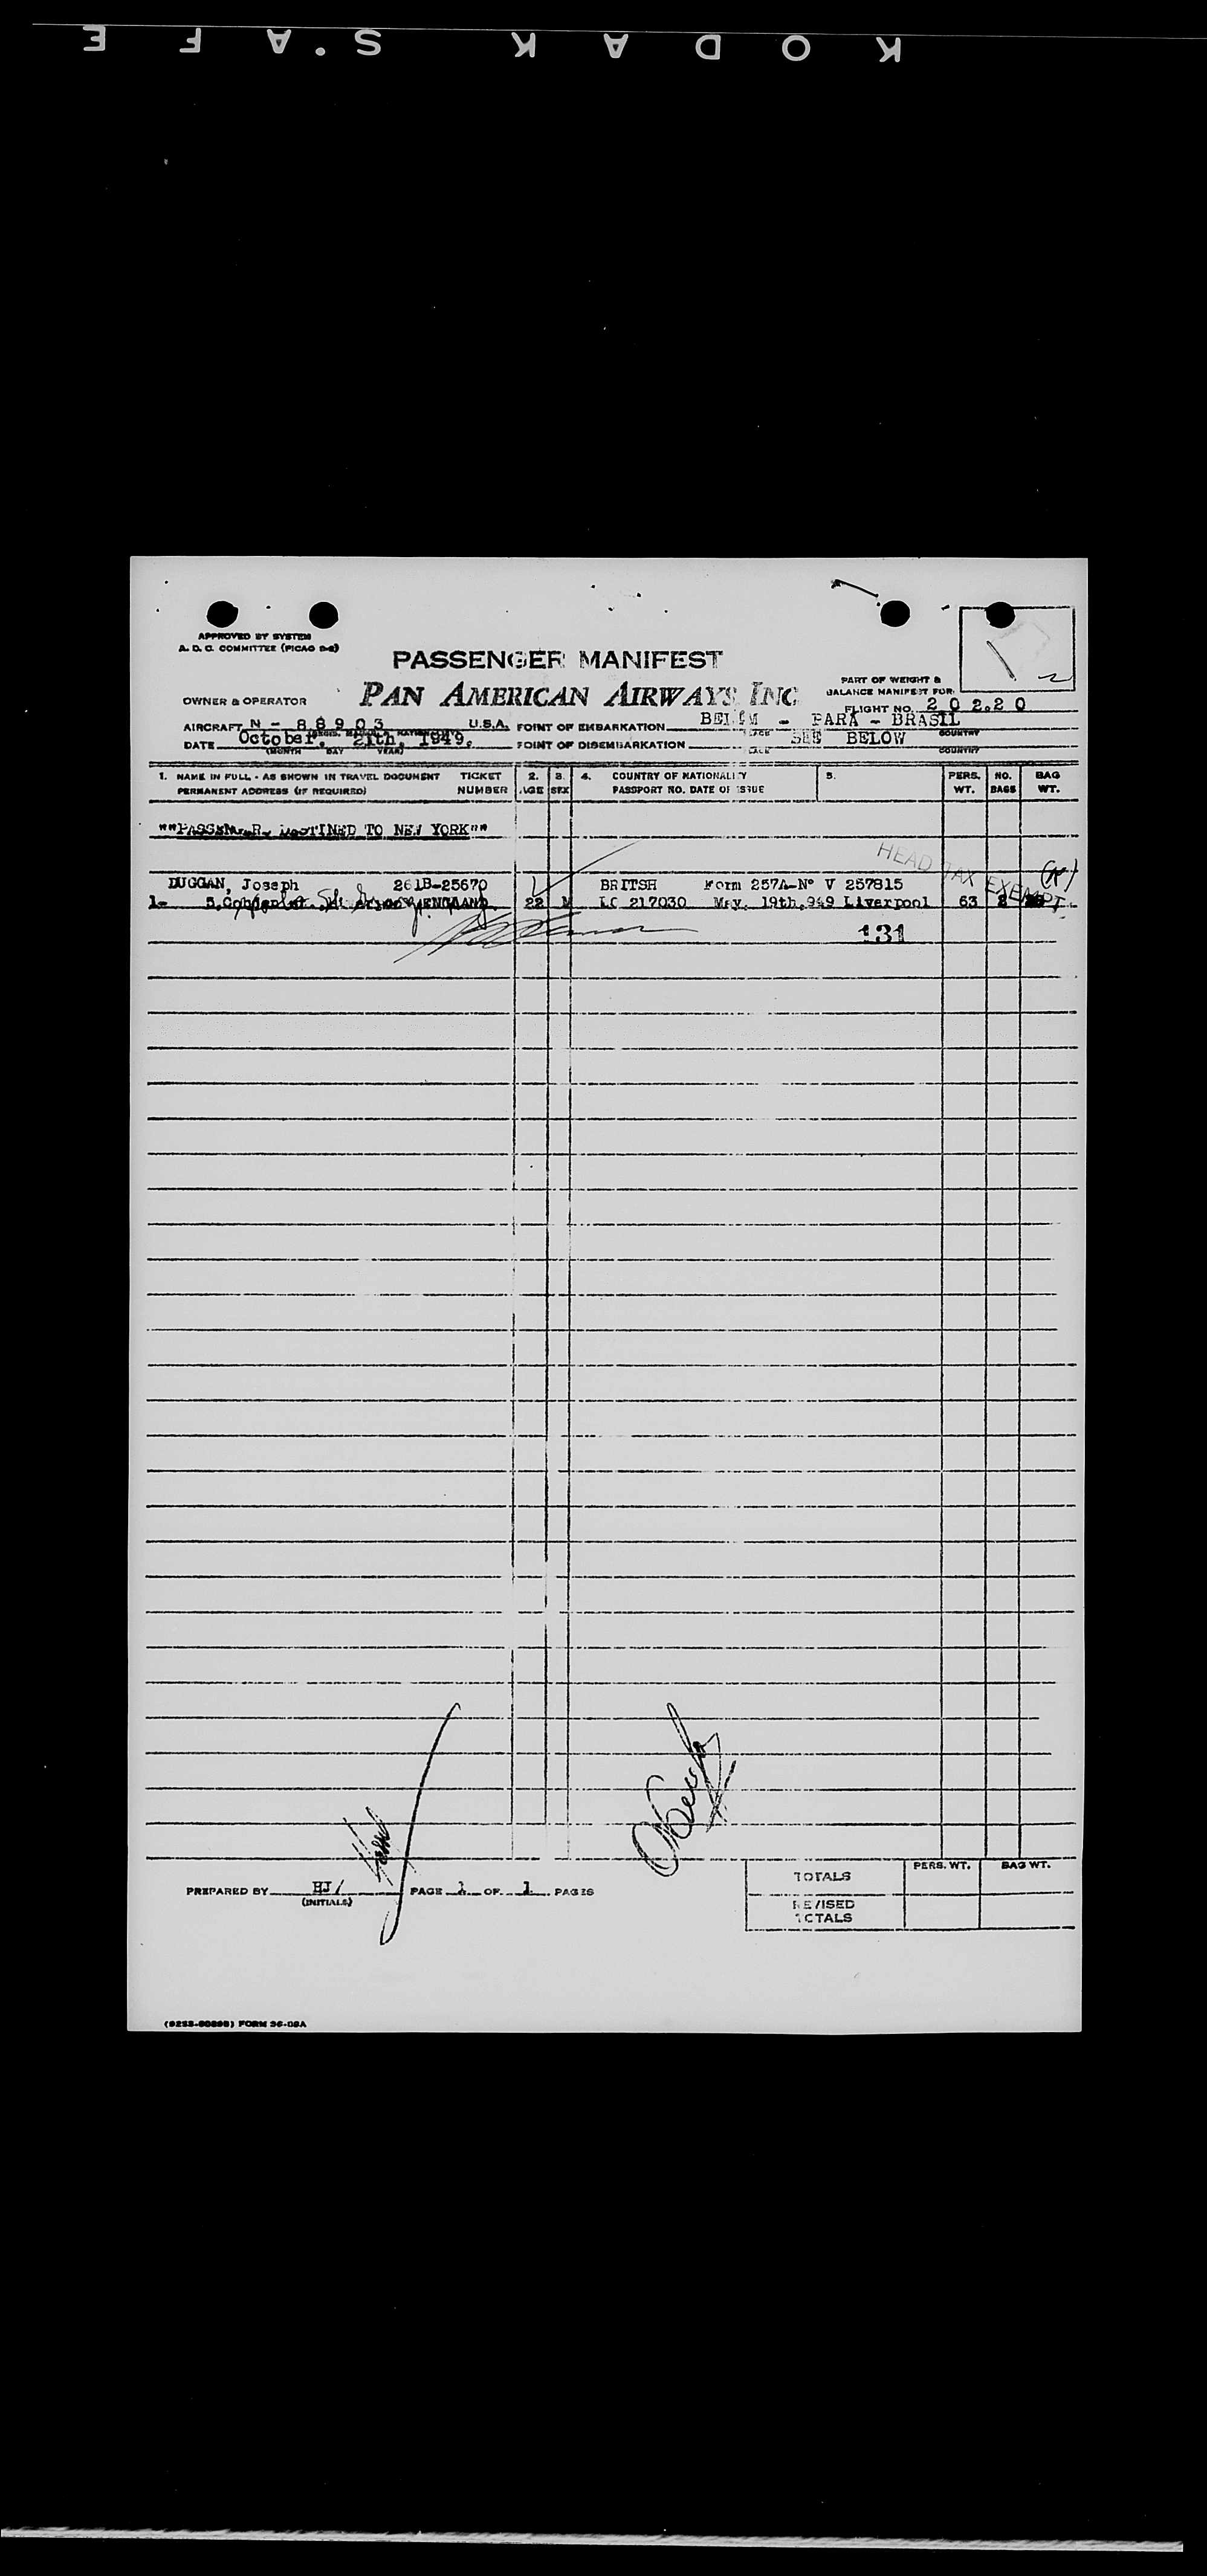 KODAK S.A F E
APPROVED BY SYSTEM
A. D. C. COMMITTEE (PICAO
PASSENGER MANIFEST
PAN AMERICAN AIRWAYS INC
PART OF WEIGHT &
BALANCE MANIFEST FOR
OWNER & OPERATOR
FLIGHT NO. 2 0 2.2 0
AIRCRAFT N - 8 8 9 0 3 U.S.A. POINT OF EMBARKATION BELEM - PARA - BRASIL
DATE October, 21th, 1949. POINT OF DISEMBARKATION SEE BELOW
(MONTH DAY YEAR) PLACE COUNTRY
1. NAME IN FULL - AS SHOWN IN TRAVEL DOCUMENT TICKET 2. 3. 4. COUNTRY OF NATIONALITY 5. PERS. NO. BAG
PERMANENT ADDRESS (IF REQUIRED) NUMBER AGE SEX PASSPORT NO. DATE OF ISSUE WT. BAGS WT.
""PASSENGER DESTINED TO NEW YORK""
HEAD TAX EXEMPT
DUGGAN, Joseph 261B-25670 BRITSH Form 257A-Nº V 257815
1- 5, ENGLAND. 22 M LC 217030 May. 19th,949 Liverpool 63 2
131
PERS. WT. BAG WT.
TOTALS
PREPARED BY HJ/ PAGE 1 OF 1 PAGES
(INITIALS)
REVISED
TOTALS
FORM 26-08A